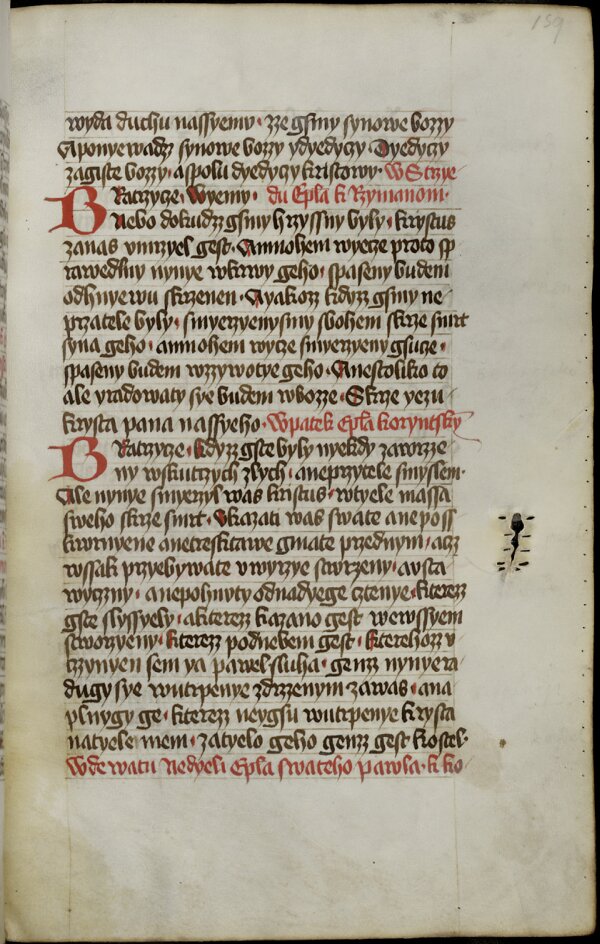 159
wyda duchu nassyemu · zze gsmy synowe bozzy
Aponyewadz synowe bozzy ydyedyczy · Dyedyczy
zagiste bozzy · aspolu dyedyczy kristowy · wStrze
Bratrzycze · Wyemy · du Epla k Rzymanom ·
Nebo dokudz gsmy hrzyssny byly · krystus
zanas vmrzyel gest · Amnohem wyecze proto sp
rawedlny nynye wkrwy geho · spaseny budem
odhnyewu skrzenen · Ayakozz kdyzz gsmy ne
przatele byly · smyerzyemysmy sbohem skrze smrt
syna geho · amnohem wycze smyerzyeny gsucze ·
spaseny budem wzzywotye geho · Anestoliko to
ale yradowaty sye budem wbozze · Skrze yezu
krysta pana nassyeho · Wpatek Epla koryntsky
Bratrzycze · kdyzz gste byly nyekdy zaworze
ny wskutczych zlych · aneprzytele smyslem ·
Ale nynye smyerzyl was kristus · wtyele massa
sweho skrze smrt · Vkazati was swate aneposs
kwrnyene anetresktawe gmate przednym · aczz
wssak przyebywate vwyrzye stworzeny · avsta
wyczny · anepohnuty odnadyege cztenye · kterezz
gste slyssyely · akterezz kazano gest wewssyem
stworzyeny · kterezz podnebem gest · kterehozz v
czzynyen sem ya pawel sluha · genzz nynye ra
dugy sye wutrpenye zdrzzenym zawas · ana
plnygy ge · kterezz neygsu wutrpenye krysta
natyele mem · zatyelo geho genzz gest kostel ·
Wde watu Nedyeli Epla swateho pawla · k ko